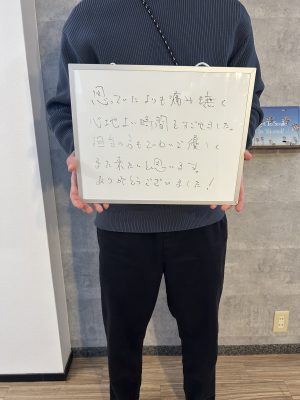 思っていたよりも痛みも無く
心地よい時間をすごせました。
担当の方もていねいで優しく
また来たいと思います。
ありがとうございました!